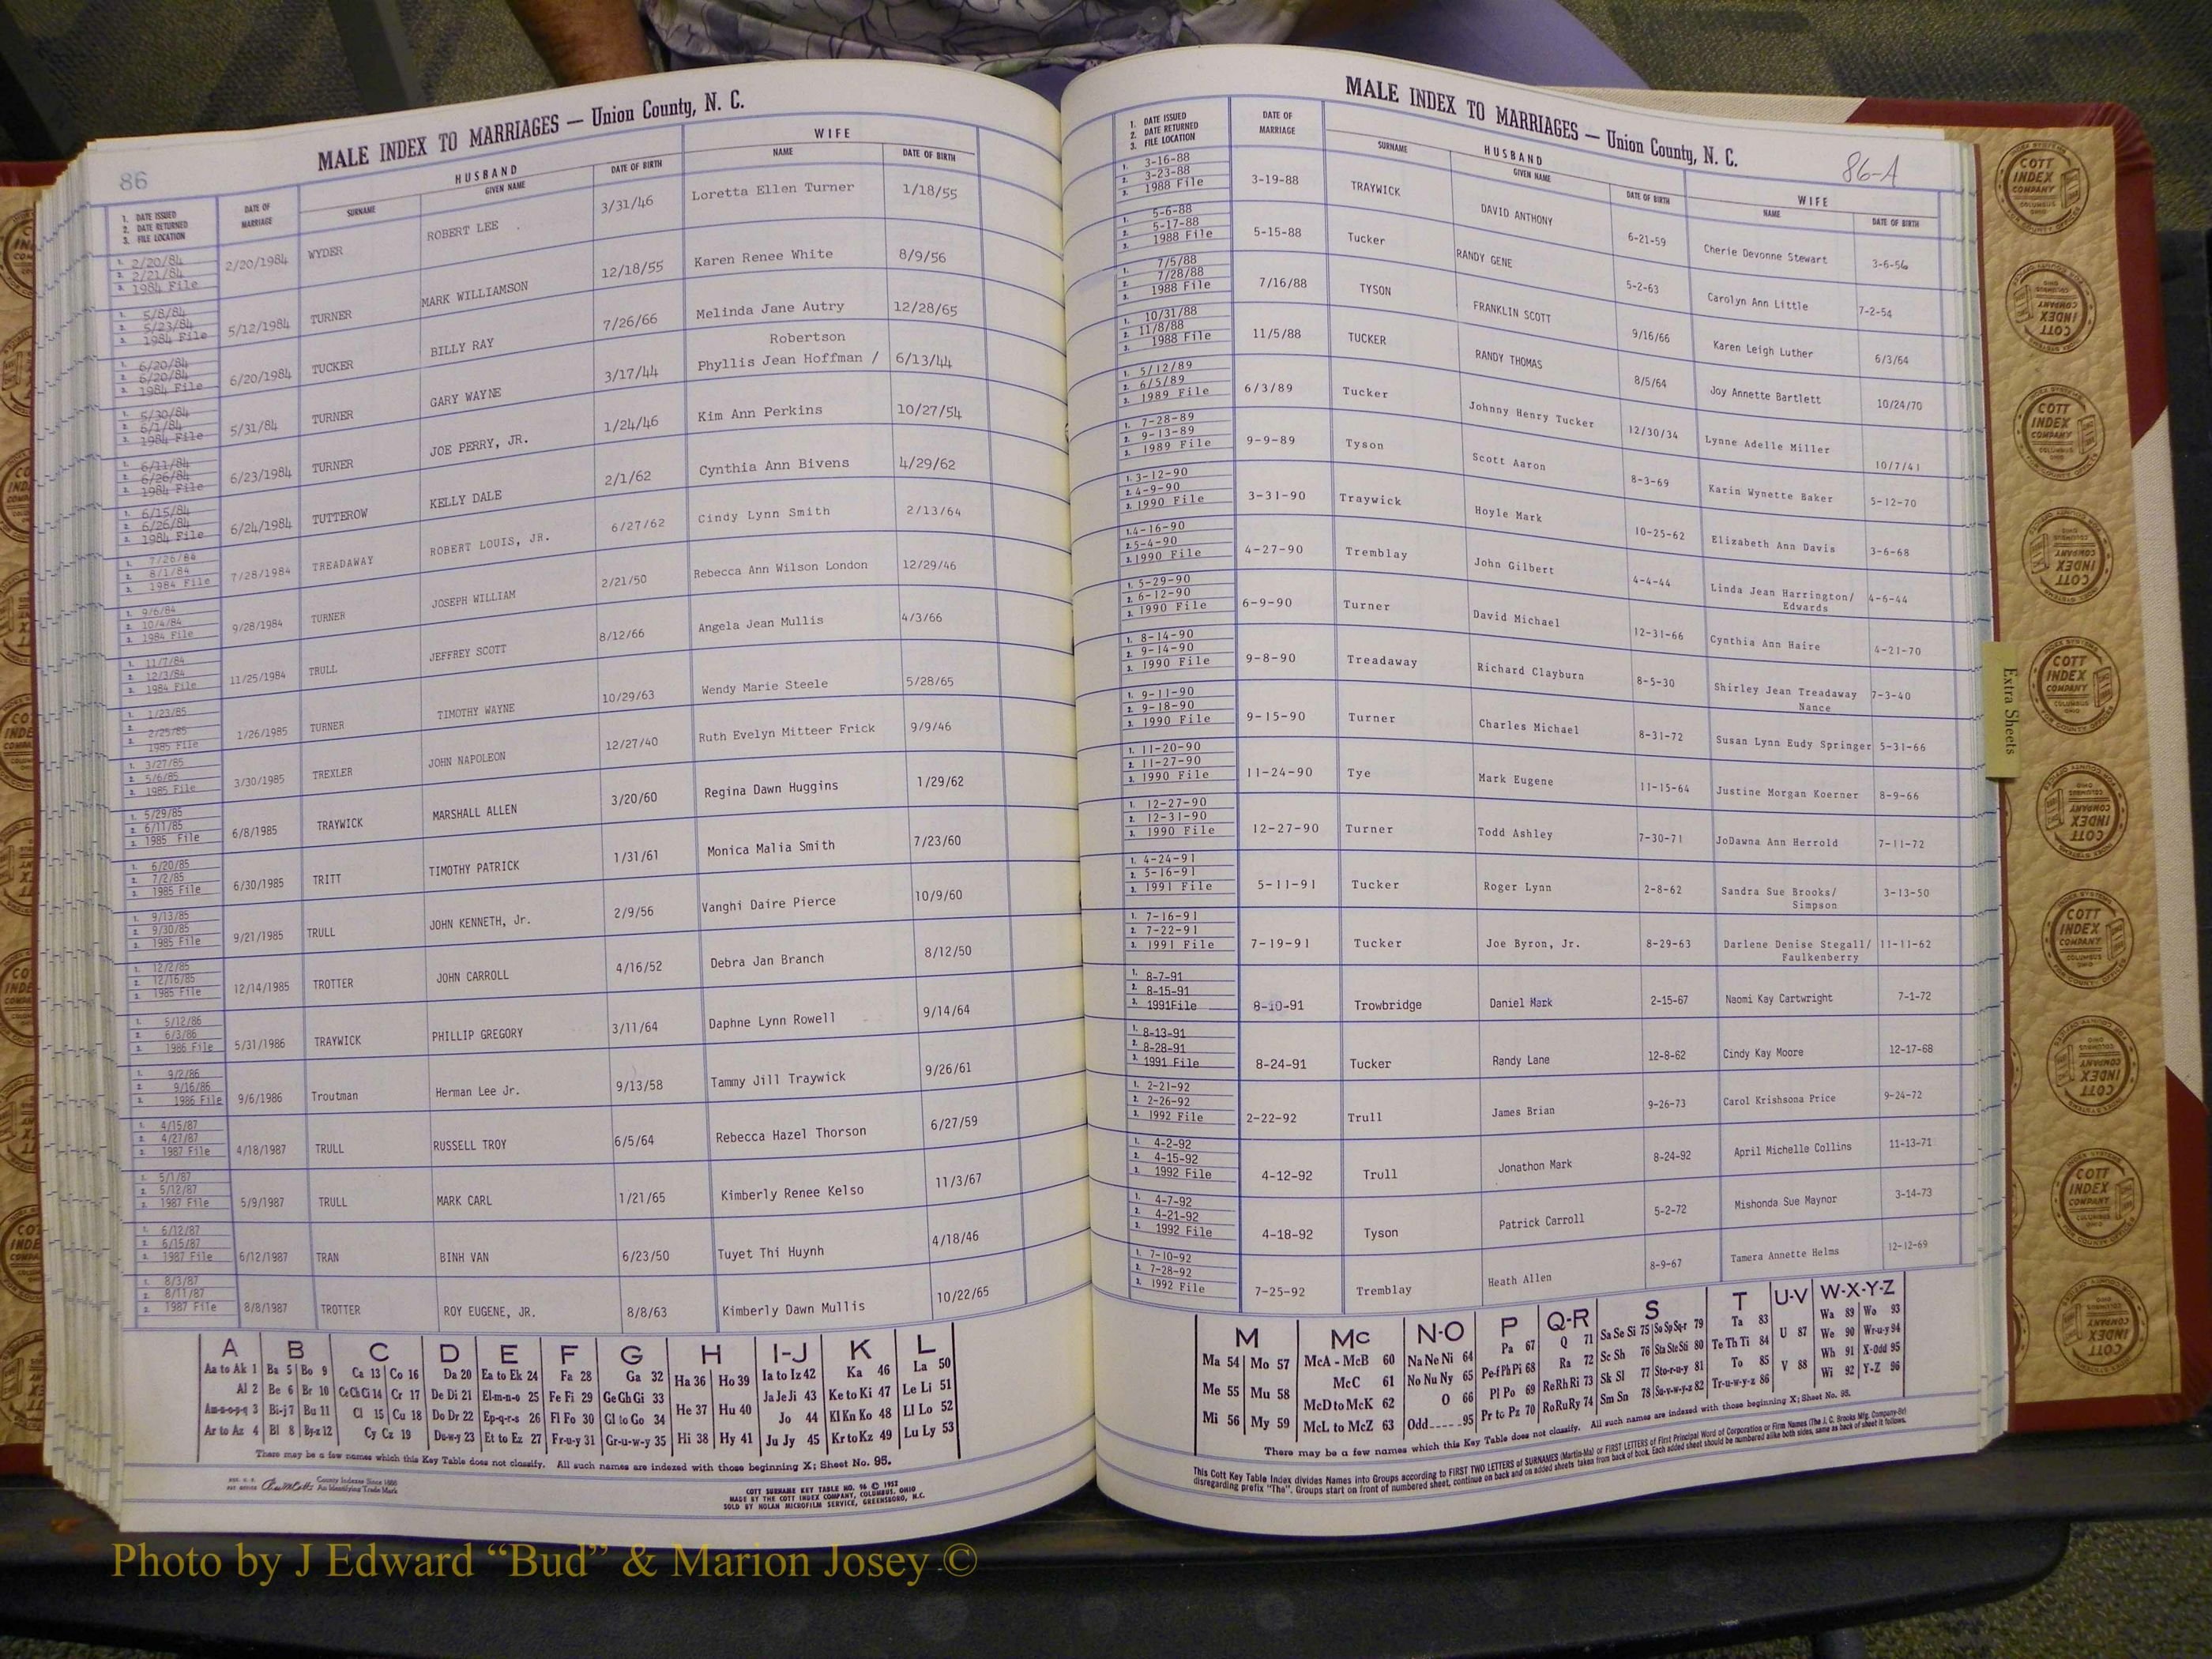 86
MALE INDEX TO MARRIAGES — Union County, N. C.
1. DATE ISSUED 2. DATE RETURNED 3. FILE LOCATION DATE OF MARRIAGE HUSBAND SURNAME GIVEN NAME DATE OF BIRTH WIFE NAME DATE OF BIRTH
1. 2/20/84 2. 2/21/84 3. 1984 File 2/20/1984 WYDER ROBERT LEE 3/31/46 Loretta Ellen Turner 1/18/55
1. 5/8/84 2. 5/23/84 3. 1984 File 5/12/1984 TURNER MARK WILLIAMSON 12/18/55 Karen Renee White 8/9/56
1. 6/20/84 2. 6/20/84 3. 1984 File 6/20/1984 TUCKER BILLY RAY 7/26/66 Melinda Jane Autry 12/28/65
1. 5/30/84 2. 6/1/84 3. 1984 File 5/31/84 TURNER GARY WAYNE 3/17/44 Robertson Phyllis Jean Hoffman / 6/13/44
1. 6/11/84 2. 6/26/84 3. 1984 File 6/23/1984 TURNER JOE PERRY, JR. 1/24/46 Kim Ann Perkins 10/27/54
1. 6/15/84 2. 6/26/84 3. 1984 File 6/24/1984 TUTTEROW KELLY DALE 2/1/62 Cynthia Ann Bivens 4/29/62
1. 7/26/84 2. 8/1/84 3. 1984 File 7/28/1984 TREADAWAY ROBERT LOUIS, JR. 6/27/62 Cindy Lynn Smith 2/13/64
1. 9/6/84 2. 10/4/84 3. 1984 File 9/28/1984 TURNER JOSEPH WILLIAM 2/21/50 Rebecca Ann Wilson London 12/29/46
1. 11/7/84 2. 12/3/84 3. 1984 File 11/25/1984 TRULL JEFFREY SCOTT 8/12/66 Angela Jean Mullis 4/3/66
1. 1/23/85 2. 2/25/85 1985 File 1/26/1985 TURNER TIMOTHY WAYNE 10/29/63 Wendy Marie Steele 5/28/65
1. 3/27/85 2. 5/6/85 3. 1985 File 3/30/1985 TREXLER JOHN NAPOLEON 12/27/40 Ruth Evelyn Mitteer Frick 9/9/46
1. 5/29/85 2. 6/11/85 3. 1985 File 6/8/1985 TRAYWICK MARSHALL ALLEN 3/20/60 Regina Dawn Huggins 1/29/62
1. 6/20/85 2. 7/2/85 3. 1985 File 6/30/1985 TRITT TIMOTHY PATRICK 1/31/61 Monica Malia Smith 7/23/60
1. 9/13/85 2. 9/30/85 3. 1985 File 9/21/1985 TRULL JOHN KENNETH, Jr. 2/9/56 Vanghi Daire Pierce 10/9/60
1. 12/2/85 2. 12/16/85 3. 1985 File 12/14/1985 TROTTER JOHN CARROLL 4/16/52 Debra Jan Branch 8/12/50
1. 5/12/86 2. 6/3/86 3. 1986 File 5/31/1986 TRAYWICK PHILLIP GREGORY 3/11/64 Daphne Lynn Rowell 9/14/64
1. 9/2/86 2. 9/16/86 3. 1986 File 9/6/1986 Troutman Herman Lee Jr. 9/13/58 Tammy Jill Traywick 9/26/61
1. 4/15/87 2. 4/27/87 3. 1987 File 4/18/1987 TRULL RUSSELL TROY 6/5/64 Rebecca Hazel Thorson 6/27/59
1. 5/1/87 2. 5/12/87 3. 1987 File 5/9/1987 TRULL MARK CARL 1/21/65 Kimberly Renee Kelso 11/3/67
1. 6/12/87 2. 6/15/87 3. 1987 File 6/12/1987 TRAN BINH VAN 6/23/50 Tuyet Thi Huynh 4/18/46
1. 8/3/87 2. 8/11/87 3. 1987 File 8/8/1987 TROTTER ROY EUGENE, JR. 8/8/63 Kimberly Dawn Mullis 10/22/65
A B C D E F G H I-J K L
Aa to Ak 1 Ba 5 Bo 9 Ca 13 Co 16 Da 20 Ea to Ek 24 Fa 28 Ga 32 Ha 36 Ho 39 Ia to Iz 42 Ka 46 La 50
Al 2 Be 6 Br 10 Ce Ch Ci 14 Cr 17 De Di 21 El-m-n-o 25 Fe Fi 29 Ge Gh Gi 33 He 37 Hu 40 Ja Je Ji 43 Ke to Ki 47 Le Li 51
Am-n-o-p-q 3 Bi-j 7 Bu 11 Cl 15 Cu 18 Do Dr 22 Ep-q-r-s 26 Fl Fo 30 Gl to Go 34 Jo 44 Kl Kn Ko 48 Ll Lo 52
Ar to Az 4 Bl 8 By-z 12 Cy Cz 19 Du-w-y 23 Et to Ez 27 Fr-u-y 31 Gr-u-w-y 35 Hi 38 Hy 41 Ju Jy 45 Kr to Kz 49 Lu Ly 53
There may be a few names which this Key Table does not classify. All such names are indexed with those beginning X; Sheet No. 95.
County Indexes Since 1888
An Identifying Trade Mark
COTT SURNAME KEY TABLE NO. 96 © 1952
MADE BY THE COTT INDEX COMPANY, COLUMBUS, OHIO
SOLD BY NOLAN MICROFILM SERVICE, GREENSBORO, N.C.
MALE INDEX TO MARRIAGES — Union County, N. C.
86-A
1. DATE ISSUED 2. DATE RETURNED 3. FILE LOCATION DATE OF MARRIAGE HUSBAND SURNAME GIVEN NAME DATE OF BIRTH WIFE NAME DATE OF BIRTH
1. 3-16-88 2. 3-23-88 3. 1988 File 3-19-88 TRAYWICK DAVID ANTHONY 6-21-59 Cherie Devonne Stewart 3-6-56
1. 5-6-88 2. 5-17-88 3. 1988 File 5-15-88 Tucker RANDY GENE 5-2-63 Carolyn Ann Little 7-2-54
1. 7/5/88 2. 7/28/88 3. 1988 File 7/16/88 TYSON FRANKLIN SCOTT 9/16/66 Karen Leigh Luther 6/3/64
1. 10/31/88 2. 11/8/88 3. 1988 File 11/5/88 TUCKER RANDY THOMAS 8/5/64 Joy Annette Bartlett 10/24/70
1. 5/12/89 2. 6/5/89 3. 1989 File 6/3/89 Tucker Johnny Henry Tucker 12/30/34 Lynne Adelle Miller 10/7/41
1. 7-28-89 2. 9-13-89 3. 1989 File 9-9-89 Tyson Scott Aaron 8-3-69 Karin Wynette Baker 5-12-70
1. 3-12-90 2. 4-9-90 3. 1990 File 3-31-90 Traywick Hoyle Mark 10-25-62 Elizabeth Ann Davis 3-6-68
1. 4-16-90 2. 5-4-90 3. 1990 File 4-27-90 Tremblay John Gilbert 4-4-44 Linda Jean Harrington/ Edwards 4-6-44
1. 5-29-90 2. 6-12-90 3. 1990 File 6-9-90 Turner David Michael 12-31-66 Cynthia Ann Haire 4-21-70
1. 8-14-90 2. 9-14-90 3. 1990 File 9-8-90 Treadaway Richard Clayburn 8-5-30 Shirley Jean Treadaway Nance 7-3-40
1. 9-11-90 2. 9-18-90 3. 1990 File 9-15-90 Turner Charles Michael 8-31-72 Susan Lynn Eudy Springer 5-31-66
1. 11-20-90 2. 11-27-90 3. 1990 File 11-24-90 Tye Mark Eugene 11-15-64 Justine Morgan Koerner 8-9-66
1. 12-27-90 2. 12-31-90 3. 1990 File 12-27-90 Turner Todd Ashley 7-30-71 JoDawna Ann Herrold 7-11-72
1. 4-24-91 2. 5-16-91 3. 1991 File 5-11-91 Tucker Roger Lynn 2-8-62 Sandra Sue Brooks/ Simpson 3-13-50
1. 7-16-91 2. 7-22-91 3. 1991 File 7-19-91 Tucker Joe Byron, Jr. 8-29-63 Darlene Denise Stegall/ Faulkenberry 11-11-62
1. 8-7-91 2. 8-15-91 3. 1991File 8-10-91 Trowbridge Daniel Mark 2-15-67 Naomi Kay Cartwright 7-1-72
1. 8-13-91 2. 8-28-91 3. 1991 File 8-24-91 Tucker Randy Lane 12-8-62 Cindy Kay Moore 12-17-68
1. 2-21-92 2. 2-26-92 3. 1992 File 2-22-92 Trull James Brian 9-26-73 Carol Krishsona Price 9-24-72
1. 4-2-92 2. 4-15-92 3. 1992 File 4-12-92 Trull Jonathon Mark 8-24-92 April Michelle Collins 11-13-71
1. 4-7-92 2. 4-21-92 3. 1992 File 4-18-92 Tyson Patrick Carroll 5-2-72 Mishonda Sue Maynor 3-14-73
1. 7-10-92 2. 7-28-92 3. 1992 File 7-25-92 Tremblay Heath Allen 8-9-67 Tamera Annette Helms 12-12-69
M Mc N-O P Q-R S T U-V W-X-Y-Z
Ma 54 Mo 57 McA - McB 60 Na Ne Ni 64 Pa 67 Q 71 Sa Se Si 75 So Sp Sq-r 79 Ta 83 U 87 Wa 89 Wo 93
Me 55 Mu 58 McC 61 No Nu Ny 65 Pe-f Ph Pi 68 Ra 72 Sc Sh 76 Sta Ste Sti 80 Te Th Ti 84 V 88 We 90 Wr-u-y 94
McD to McK 62 O 66 Pl Po 69 Re Rh Ri 73 Sk Sl 77 Sto-r-u-y 81 To 85 Wh 91 X-Odd 95
Mi 56 My 59 McL to McZ 63 Odd-----95 Pr to Pz 70 Ro Ru Ry 74 Sm Sn 78 Su-v-w-y-z 82 Tr-u-w-y-z 86 Wi 92 Y-Z 96
There may be a few names which this Key Table does not classify. All such names are indexed with those beginning X; Sheet No. 95.
This Cott Key Table Index divides Names into Groups according to FIRST TWO LETTERS of SURNAMES (Martin-Ma) or FIRST LETTERS of First Principal Word of Corporation or Firm Names (The J. C. Brooks Mfg. Company-Br)
disregarding prefix "The". Groups start on front of numbered sheet, continue on back and on added sheets taken from back of book. Each added sheet should be numbered alike both sides, same as back of sheet it follows.
Extra Sheets
COTT INDEX COMPANY COLUMBUS OHIO
Photo by J Edward “Bud” & Marion Josey ©